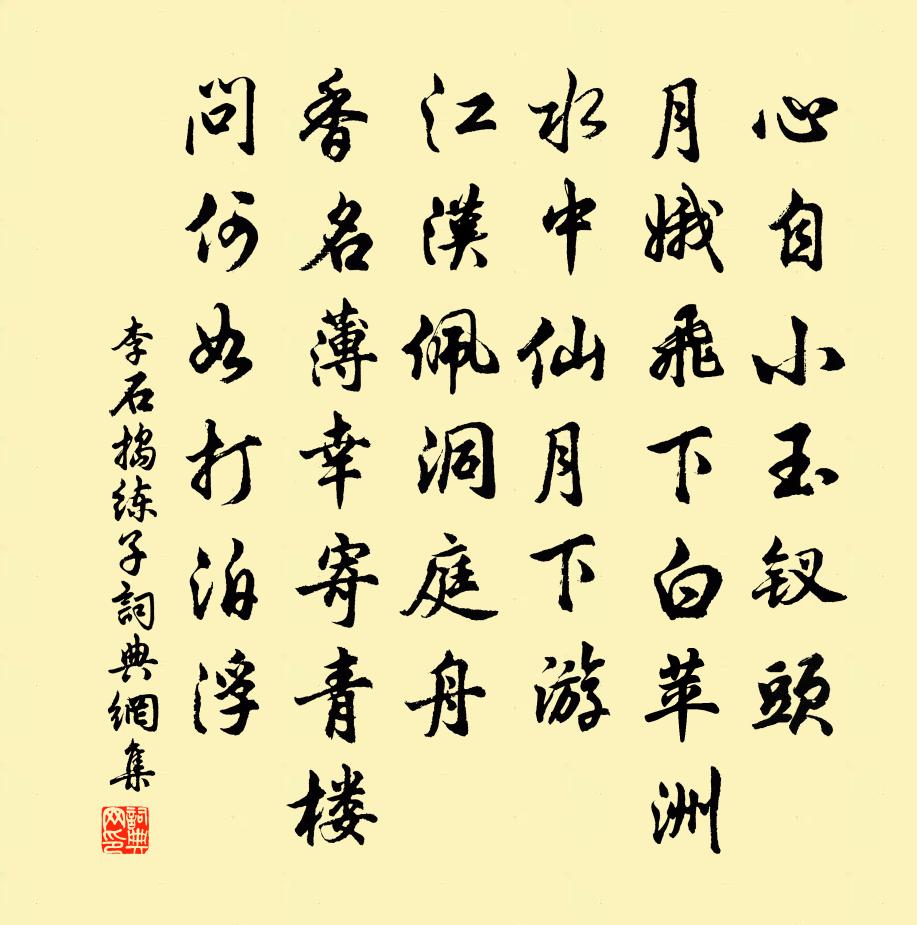 心自小玉钗頭
月娥飛下白苹洲
水中仙月下游
江漢佩洞庭舟
香名薄幸寄青楼
問何如打泊浮
李石搗练子詞典網集
詞典网印